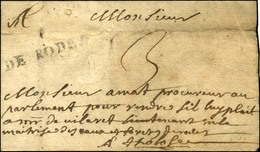 A Monsieur
DE RODEZ
3
Monsieur amat procureur au
parlement pour rendre sil luy plait
a mr de vilaret lieutenant en la
maitrise des eaux et forets de rodez
A Tolose